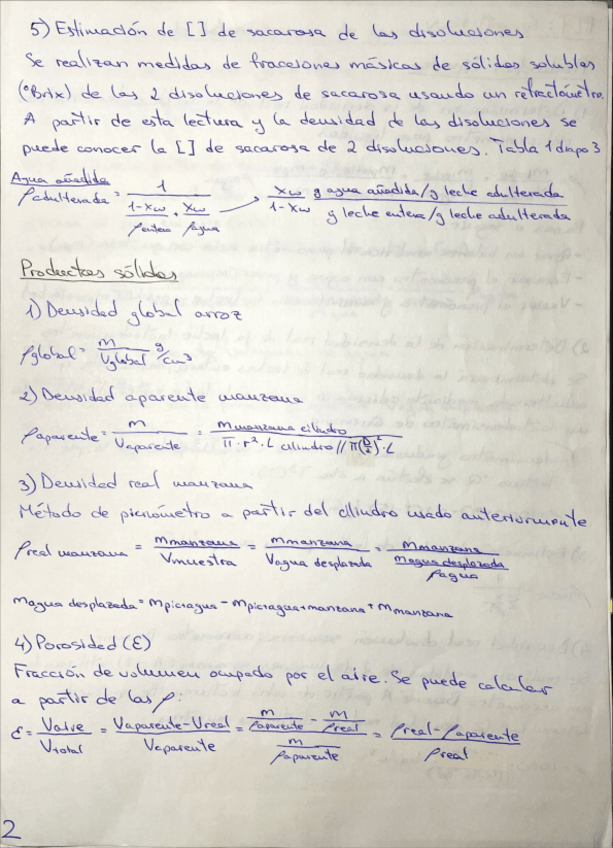 5) Estimación de [] de sacarosa de las disoluciones
Se realizan medidas de fracciones másicas de sólidos solubles
(°Brix) de las 2 disoluciones de sacarosa usando un refractómetro.
A partir de esta lectura y la densidad de las disoluciones se
puede conocer la [] de sacarosa de 2 disoluciones. Tabla 1 diapo 3
Agua añadida
ρadulterada = 1 / ((1-xw)/ρentera + xw/ρagua) → xw/(1-xw) g agua añadida/g leche adulterada / g leche entera/g leche adulterada
Productos sólidos
1) Densidad global arroz
ρglobal = m/Vglobal g/cm3
2) Densidad aparente manzana
ρaparente = m/Vaparente = mmanzana cilindro / π·r²·L cilindro // π(D/2)²·L
3) Densidad real manzana
Método de picnómetro a partir del cilindro usado anteriormente
ρreal manzana = mmanzana/Vmuestra = mmanzana/Vagua desplazada = mmanzana/(magua desplazada/ρagua)
magua desplazada = mpic+agua - mpic+agua+manzana + mmanzana
4) Porosidad (ε)
Fracción de volumen ocupado por el aire. Se puede calcular
a partir de las ρ:
ε = Vaire/Vtotal = (Vaparente - Vreal)/Vaparente = (m/ρaparente - m/ρreal)/(m/ρaparente) = (ρreal - ρaparente)/ρreal
2